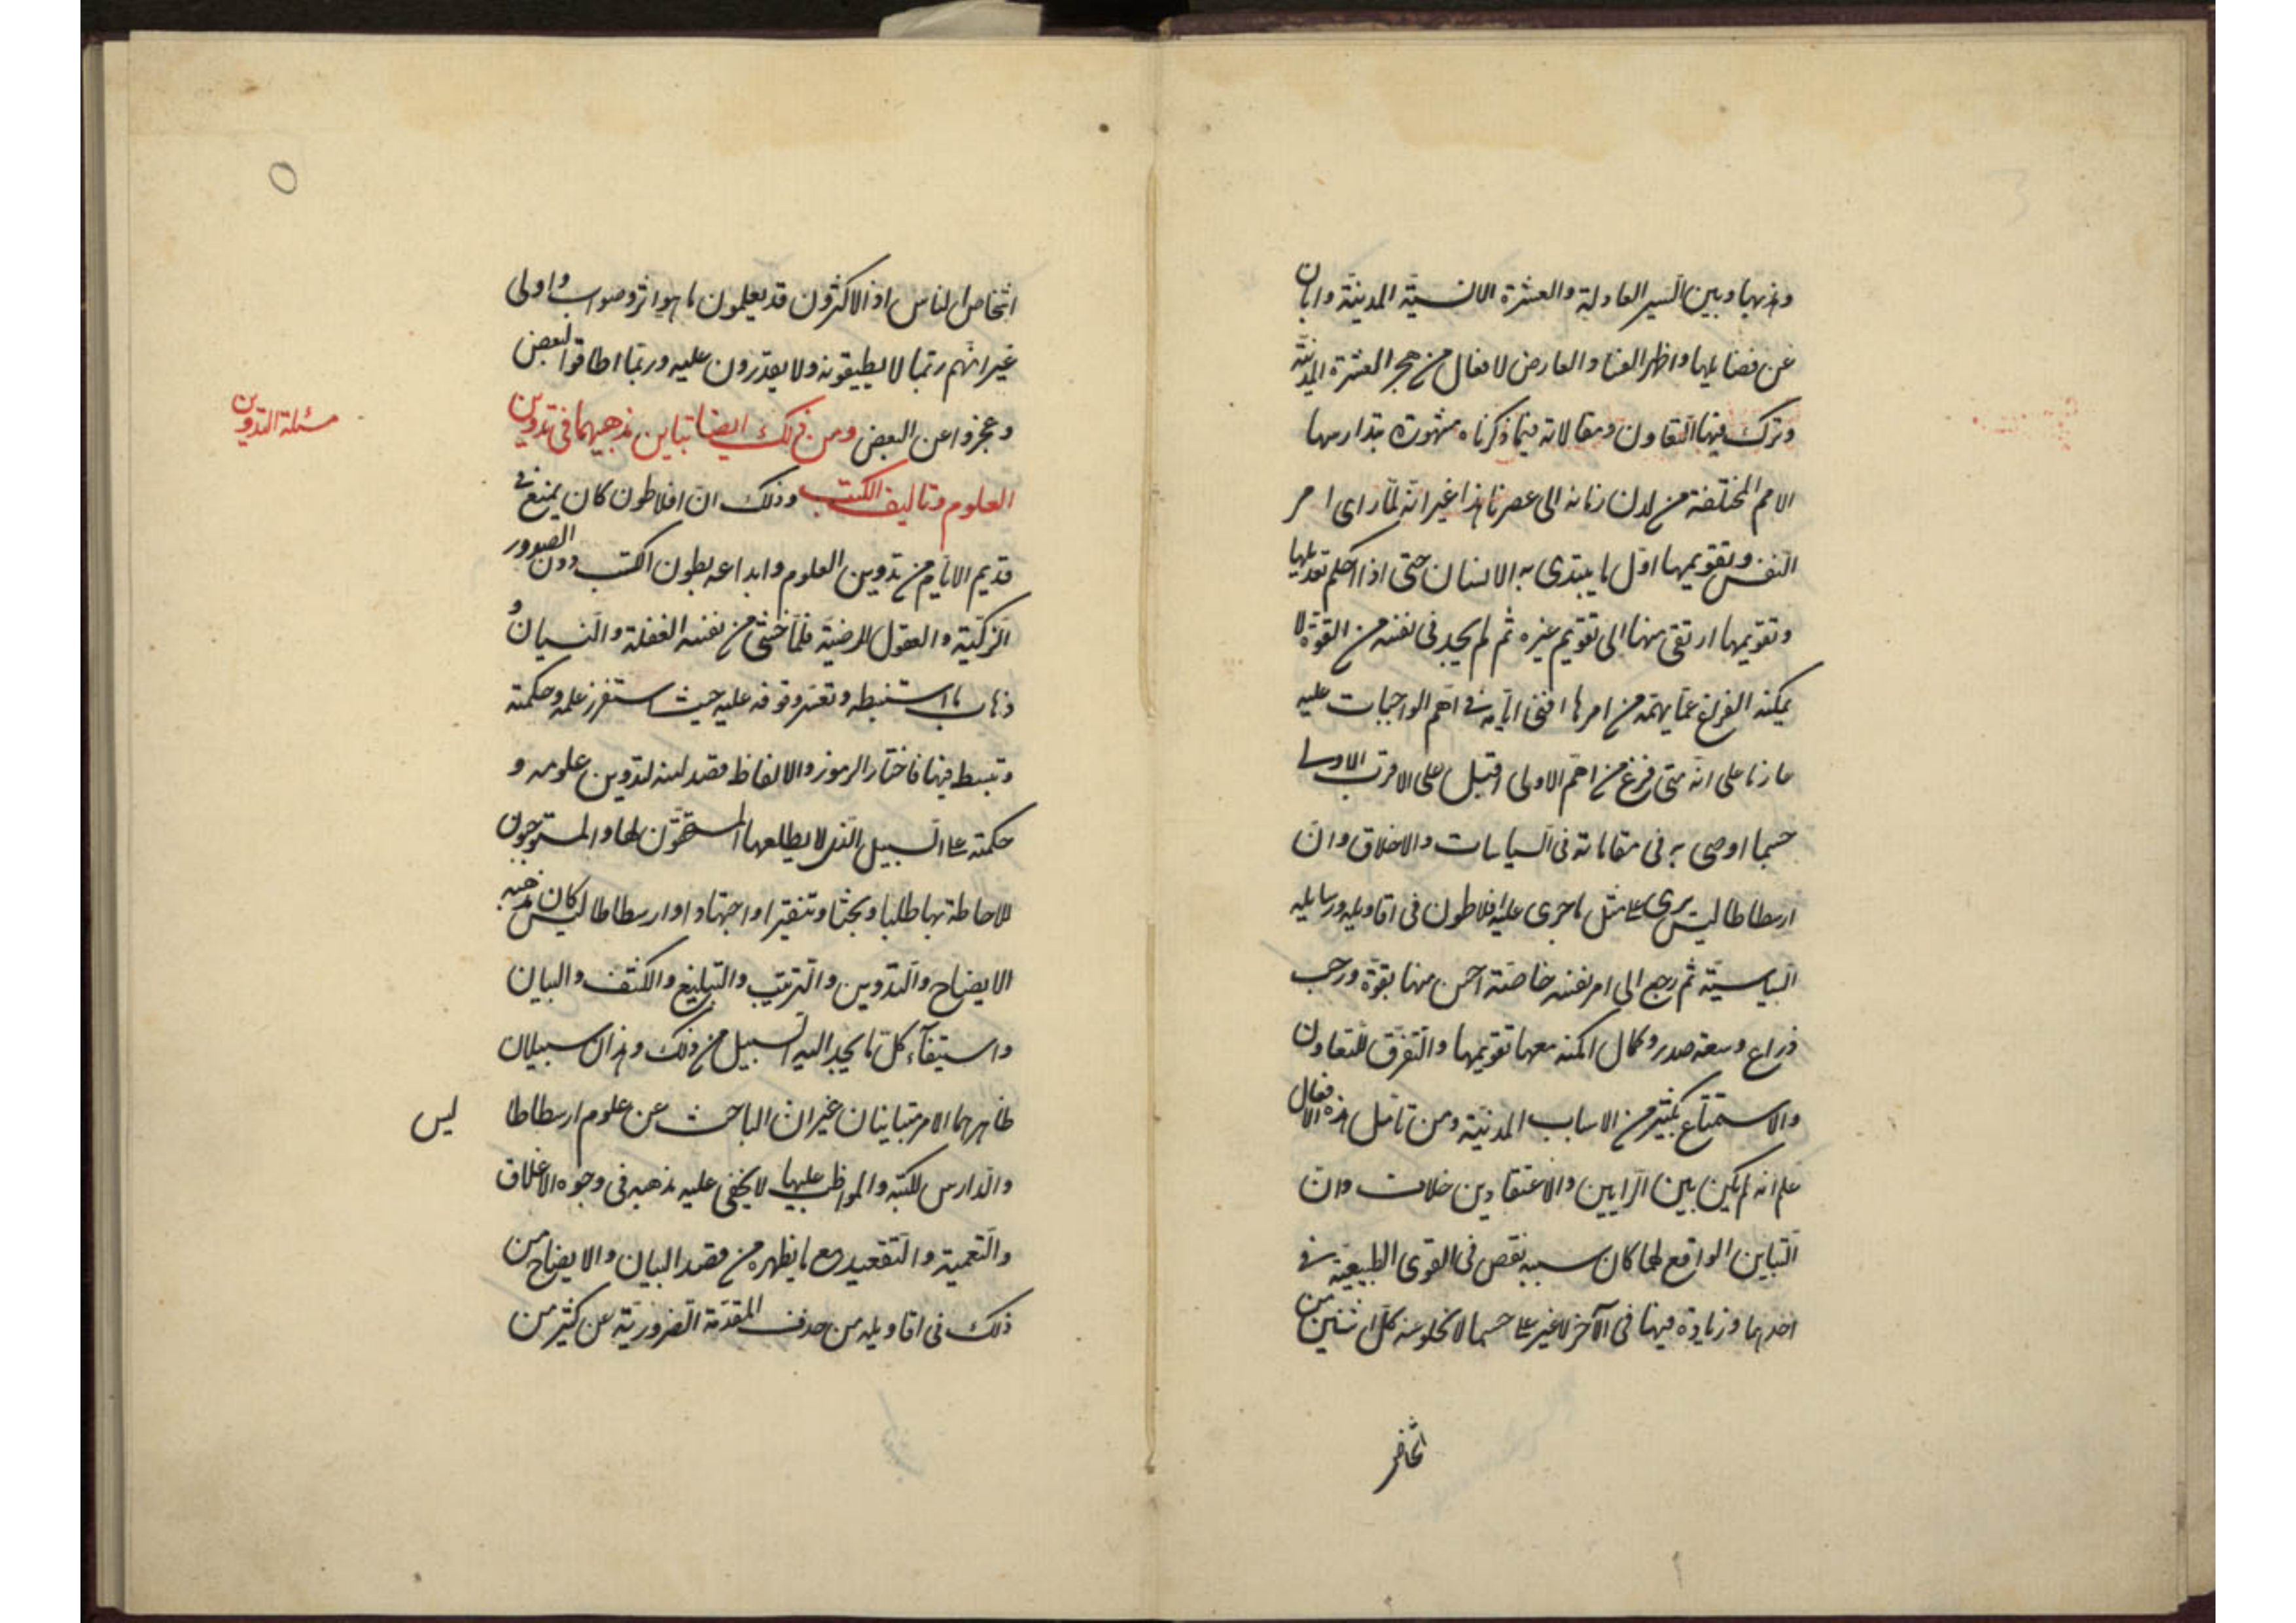 وهذبها وبين السير العادلة والعشرة الانسية المدنية وابان
عن فضايلها واظهر الفساد العارض لافعال من هجر العشرة المدنية
وترك فيها التعاون ومقالاته فيما ذكرناه مشهورة يتدارسها
الامم المختلفة من لدن زمانه الى عصرنا هذا غير انه لما راى امر
النفس وتقويمها اول ما يبتدى به الانسان حتى اذا احكم تعديلها
وتقويمها ارتقى منها الى تقويم غيره ثم لم يجد فى نفسه من القوة لا
يمكنه الفراغ عما يهمه من امرها افنى ايامه فى اهم الواجبات عليه
عازما على انه متى فرغ من اهم الاولى اقبل على الاقرب الاولى
حسبما اوصى به فى مقالاته فى السياسات والاخلاق وان
ارسطاطاليس يرى على مثل ما جرى عليه افلاطون فى اقاويله ورسايله
السياسية ثم رجع الى امر نفسه خاصة احس منها بقوة ورحب
ذراع وسعة صدر وكمال امكنه معها تقويمها والتفرق للتعاون
والاستمتاع بكثير من الاسباب المدنية ومن تامل هذه الافعال
علم انه لم يكن بين الرايين والاعتقادين خلاف وان
التباين الواقع لهما كان سببه نقص فى القوى الطبيعية فى
احدهما وزيادة فيها فى الآخر لا غير على حسبما لا يخلو منه كل اثنين من
اشخاص
اشخاص الناس اذ الاكثرون قد يعلمون ما هو اثر وصواب واولى
غير انهم ربما لا يطيقونه ولا يقدرون عليه وربما اطاقوا البعض
وعجزوا عن البعض ومن ذلك ايضا تباين مذهبيهما فى تدوين
مسئلة التدوين
العلوم وتاليف الكتب وذلك ان افلاطون كان يمنع فى
قديم الايام من تدوين العلوم وايداعه بطون الكتب دون الصدور
الزكية والعقول المرضية فلما خشى من نفسه الغفلة والنسيان و
ذهاب ما استنبطه وتعسر وقوفه عليه حيث استغزر علمه وحكمته
وتبسط فيها فاختار الرموز والالفاظ قصدا منه لتدوين علومه و
حكمته على السبيل الذى لا يطلعها المستحقون لها والمستوجبون
للاحاطة بها طلبا وبحثا وتنقيرا واجتهادا وارسطاطاليس كان مذهبه
الايضاح والتدوين والترتيب والتبليغ والكشف والبيان
واستيفآء كل ما يجد اليه السبيل من ذلك وهذان سبيلان
ظاهرهما الامر متباينان غير ان الباحث عن علوم ارسطاطا ليس
والدارس لكتبه والمواظب عليها لا يخفى عليه مذهبه فى وجوه الاغلاق
والتعمية والتقعيد مع ما يظهره من قصد البيان والايضاح من
ذلك فى اقاويله من حذف المقدمة الضرورية عن كثير من